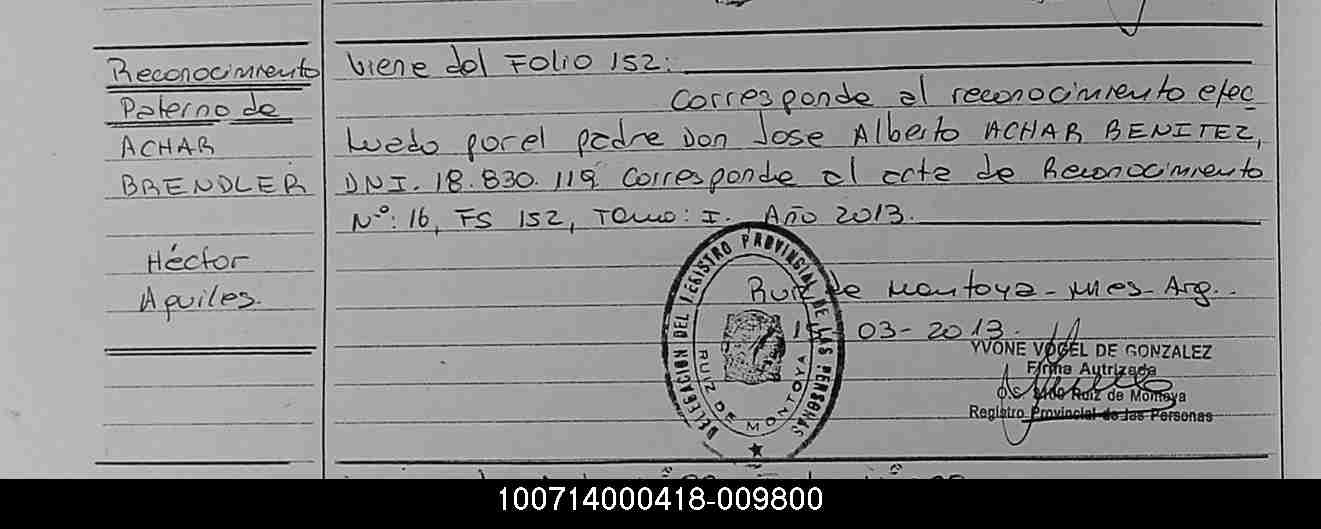 Reconocimiento
Paterno de
ACHAR
BRENDLER
Héctor
Aquiles.
viene del FOLIO 152:
Corresponde al reconocimiento efec
tuado por el padre Don Jose Alberto ACHAR BENITEZ,
DNI. 18.830.119 Corresponde al acta de Reconocimiento
Nº: 16, FS 152, Tomo: I. Año 2013.
Ruiz de Montoya - Mnes - Arg..
03-2013.
DELEGACION DEL REGISTRO PROVINCIAL DE LAS PERSONAS
RUIZ DE MONTOYA
YVONE VOGEL DE GONZALEZ
Firma Autrizada
Ruiz de Montoya
Registro Provincial de las Personas
100714000418-009800